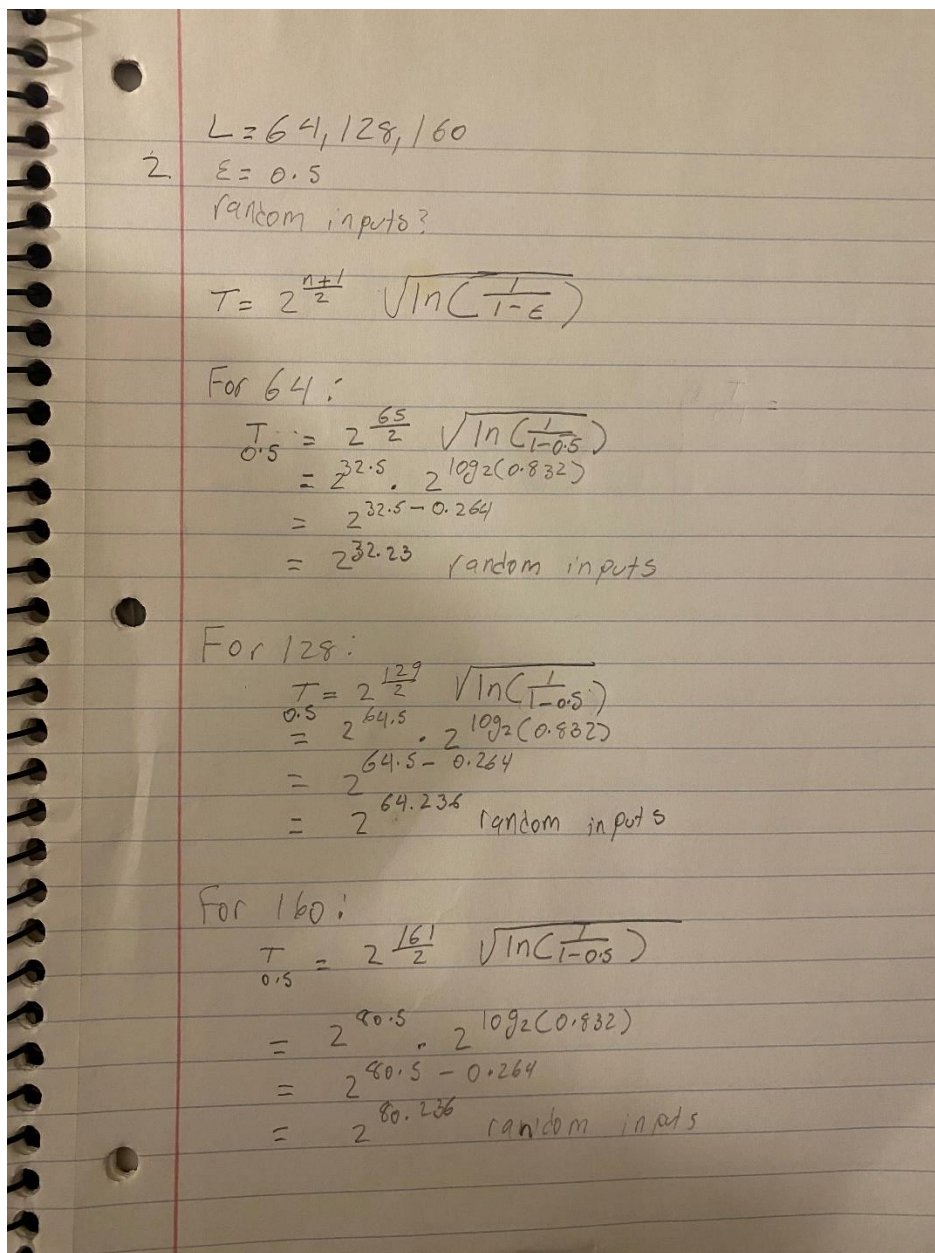 L = 64, 128, 160
2. ε = 0.5
random inputs?
T = 2^((n+1)/2) √ln(1/(1-ε))
For 64:
T_0.5 = 2^(65/2) √ln(1/(1-0.5))
= 2^32.5 · 2^log2(0.832)
= 2^(32.5-0.264)
= 2^32.23 random inputs
For 128:
T_0.5 = 2^(129/2) √ln(1/(1-0.5))
= 2^64.5 · 2^log2(0.832)
= 2^(64.5-0.264)
= 2^64.236 random inputs
For 160:
T_0.5 = 2^(161/2) √ln(1/(1-0.5))
= 2^80.5 · 2^log2(0.832)
= 2^(80.5-0.264)
= 2^80.236 random inputs